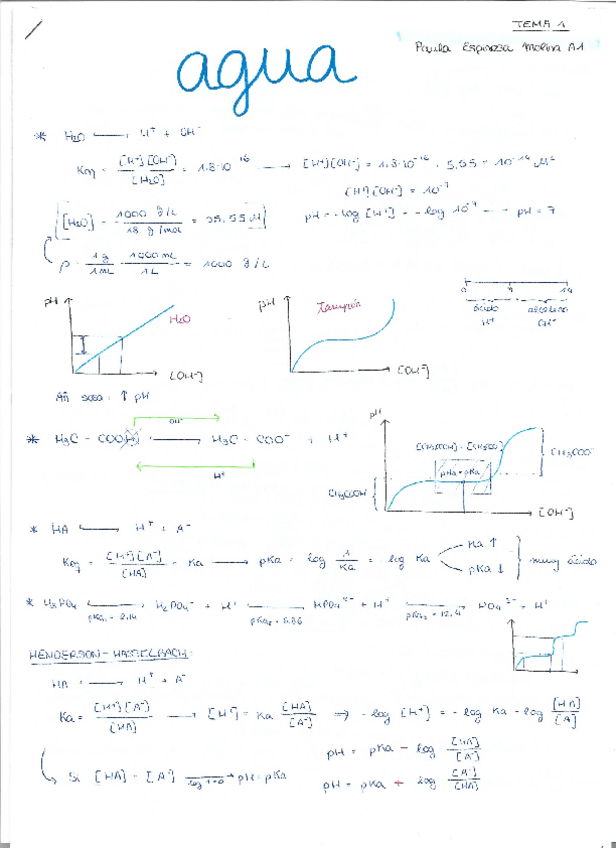 TEMA 1
Paula Espinosa Molina A1
agua
* H₂O ⟶ H⁺ + OH⁻
Keq = [H⁺][OH⁻] / [H₂O] = 1,8·10⁻¹⁶ ⟶ [H⁺][OH⁻] = 1,8·10⁻¹⁶ · 5,55 = 10⁻¹⁴ M²
[H⁺][OH⁻] = 10⁻⁷
[H₂O] = 1000 g/L / 18 g/mol = 55,55 M
pH = -log [H⁺] = -log 10⁻⁷ ⟶ pH = 7
ρ = 1g / 1mL · 1000mL / 1L = 1000 g/L
0 7 14
ácido alcalino
H⁺ OH⁻
pH H₂O [OH⁻]
pH Tampón [OH⁻]
Añ sosa: ↑ pH
* H₃C - COOH ⟶ H₃C - COO⁻ + H⁺
OH⁻
H⁺
pH
[CH₃COOH] = [CH₃COO⁻]
pHa = pKa
CH₃COO⁻
CH₃COOH
[OH⁻]
* HA ⟶ H⁺ + A⁻
Keq = [H⁺][A⁻] / [HA] = Ka ⟶ pKa = log 1/Ka = log Ka
Ka ↑
pKa ↓
muy ácido
* H₃PO₄ ⟶ H₂PO₄⁻ + H⁺ ⟶ HPO₄²⁻ + H⁺ ⟶ PO₄³⁻ + H⁺
pKa₁ = 2,14 pKa₂ = 6,86 pKa₃ = 12,4
HENDERSON-HASSELBACH:
HA ⟶ H⁺ + A⁻
Ka = [H⁺][A⁻] / [HA] ⟶ [H⁺] = Ka [HA] / [A⁻] ⇒ -log [H⁺] = -log Ka - log [HA] / [A]
pH = pKa - log [HA] / [A⁻]
Si [HA] = [A⁻] log 1=0 → pH = pKa
pH = pKa + log [A⁻] / [HA]